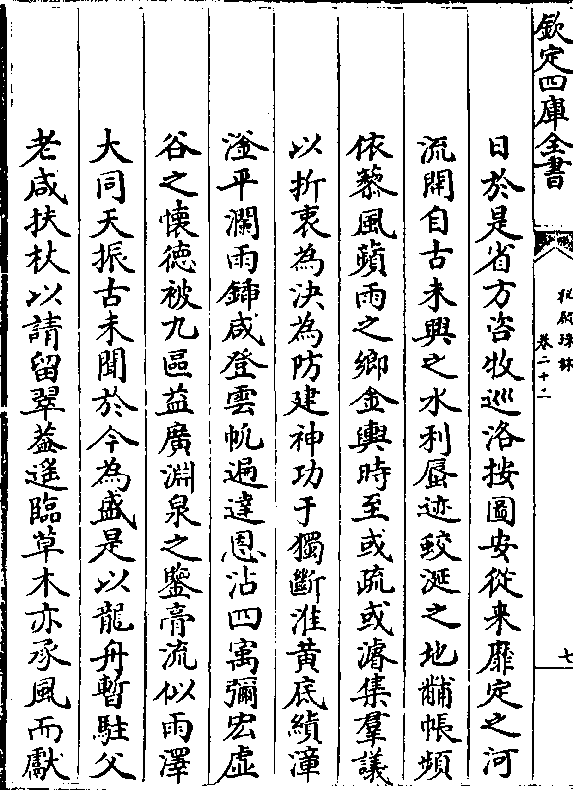 欽定四庫全書
卷二十二
七
日於是省方咨牧巡洛按圖安從来靡定之河
流開自古未興之水利蜃迹蛟涎之地黼帳頻
依藜風蘋雨之鄉金輿時至或疏或濬集羣議
以折衷為決為防建神功于獨斷淮黄底績漳
滏平瀾雨鍤咸登雲帆遍達恩沾四寓彌宏虚
谷之懷德被九區益廣淵泉之鑒膏流似雨澤
大同天振古未聞於今為盛是以龍舟暫駐父
老咸扶杖以請留翠葢遥臨草木亦承風而獻